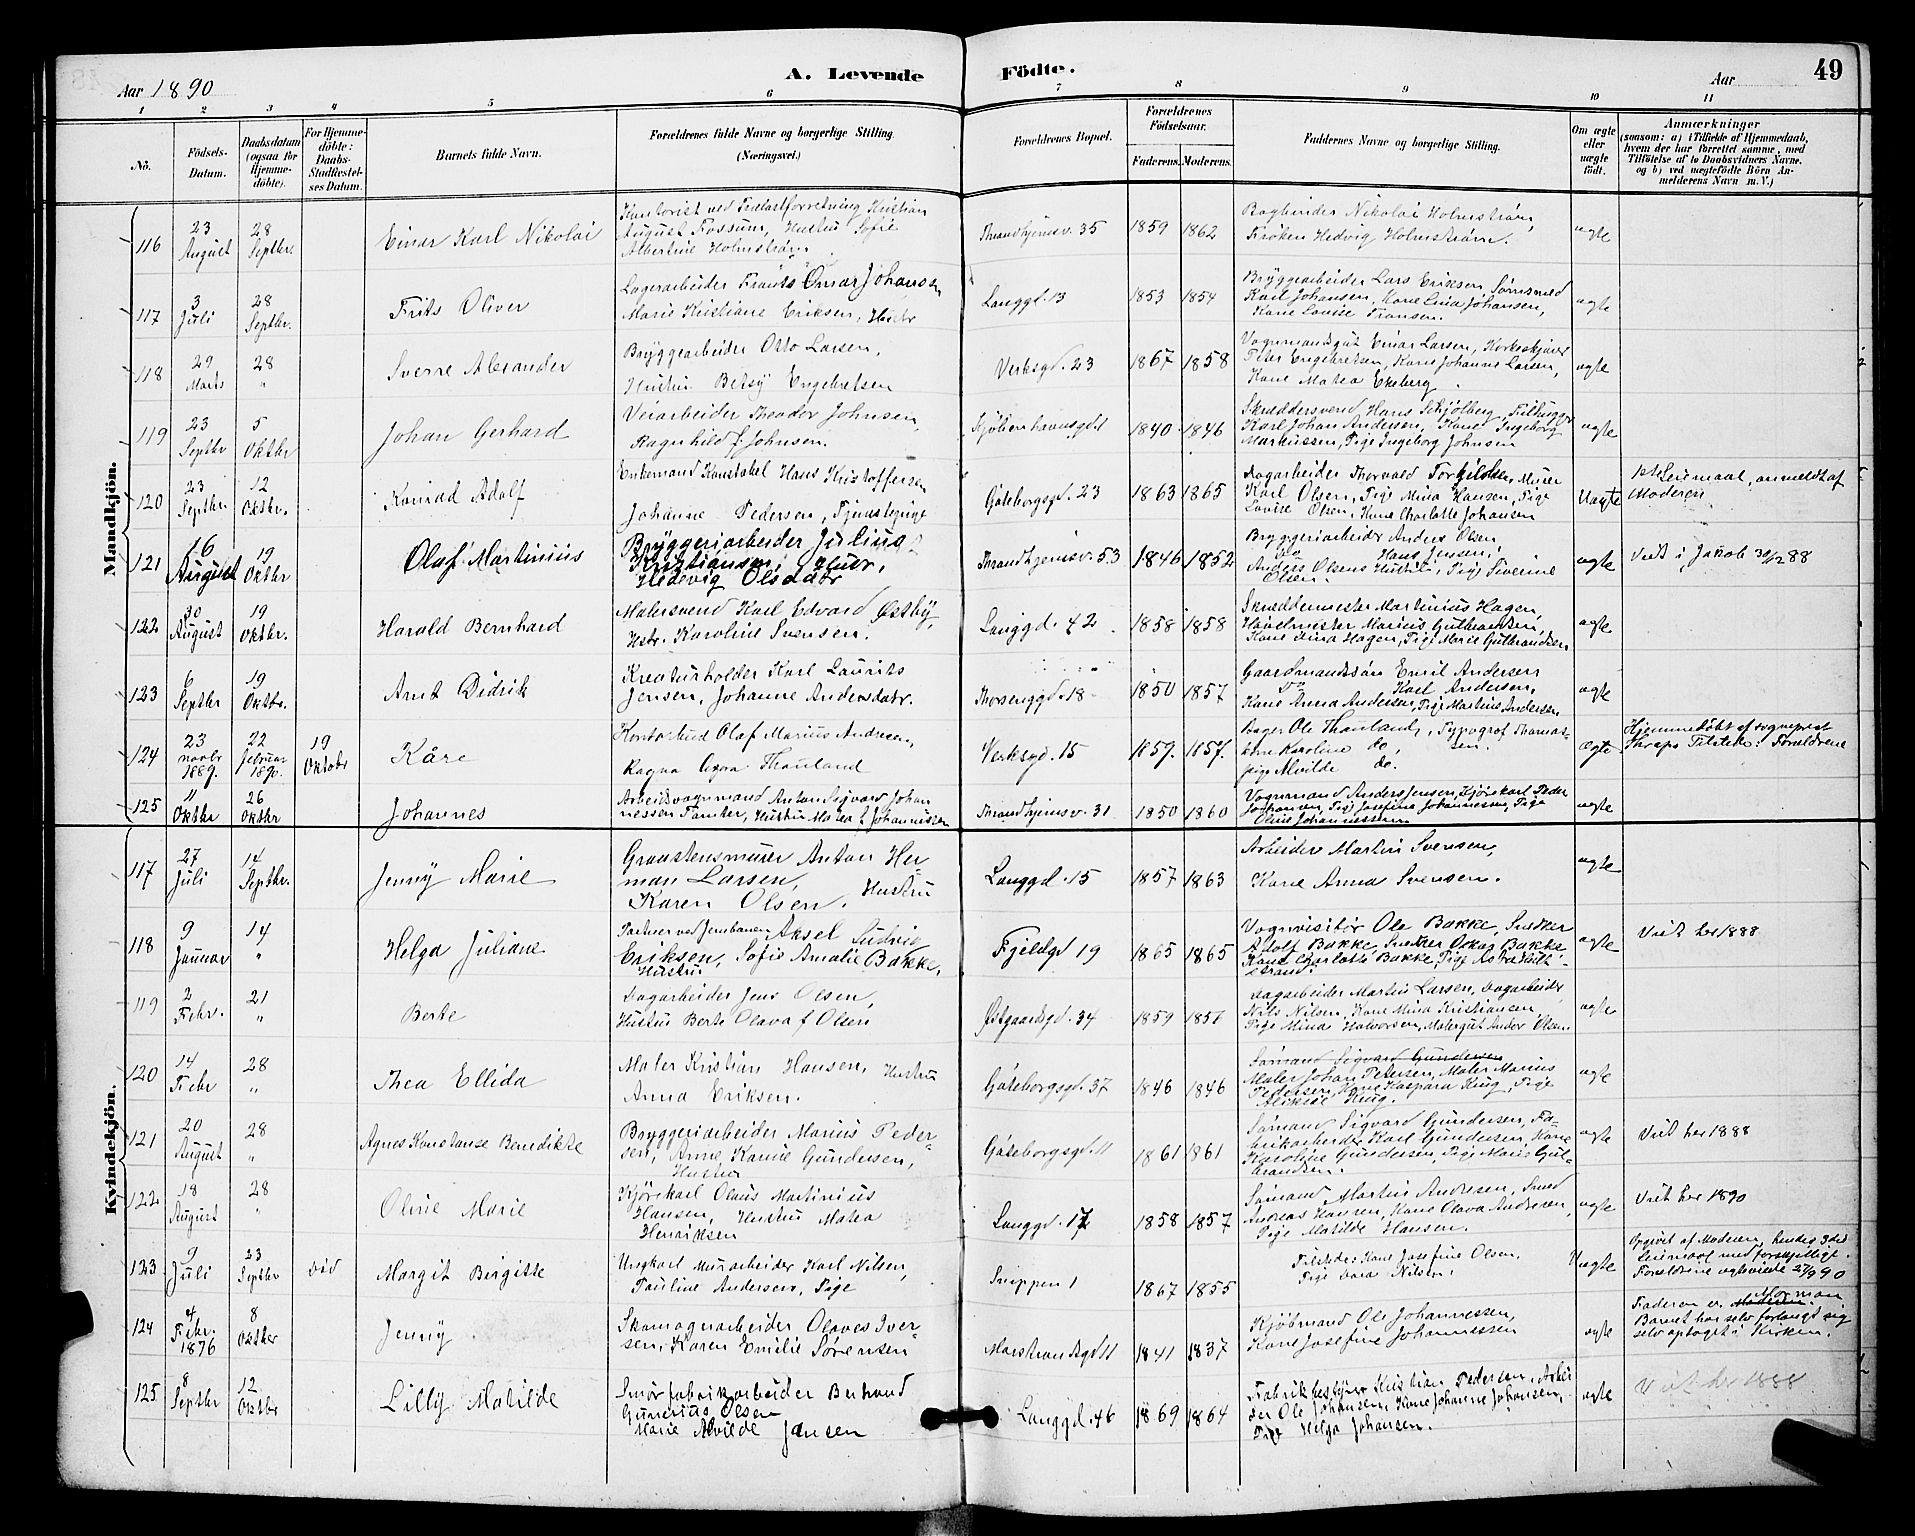 Aar 1890
A. Levende
Födte.
Aar
49
1 2 3 4 5 6 7 8 9 10 11
No.
Födsels-Datum.
Daabsdatum (ogsaa for Hjemmedöbte).
For Hjemmedöbte: Daabs-Stadfæstelses Datum.
Barnets fulde Navn.
Forældrenes fulde Navne og borgerlige Stilling. (Næringsvei.)
Forældrenes Bopæl.
Forældrenes Födselsaar.
Faderens. Moderens.
Faddernes Navne og borgerlige Stilling.
Om ægte eller uægte født.
Anmærkninger
(saasom: a) i Tilfælde af Hjemmedaab,
hvem der har forrettet samme, med
Tilföielse af to Daabsvidners Navne.
og b) ved uægtefödte Börn An-
melderens Navn m. V.)
Mandkjön.
116 23 August 28 Septbr. Einar Karl Nikolai
Kontorist ved Trælastforretning Kristian
August Fossum, Hustru Sofie
Albertine Holmström
Thrandhjemsv. 35 1859 1862
Bogbinder Nikolai Holmström,
Fröken Hedvig Holmström.
ægte
117 3 Juli 28 Septbr. Frits Oliver
Lagerarbeider Frants Omar Johansen
Marie Kristiane Eriksen, Hustr
Langgd. 13 1853 1854
Bryggearbeider Lars Eriksen,
Karl Johansen, Kone Lina Johansen,
Kone Lovise Fransen.
ægte
118 29 Marts 28 " Sverre Alexander
Bryggearbeider Otto Larsen,
Hustru Betsy Engebretsen
Verksgd. 23 1867 1858
Vognmandsgut Einar Larsen,
Peter Engebretsen, Kone Johanne Larsen,
Kone Matea Ekeberg.
ægte
119 23 Septbr 5 Oktbr Johan Gerhard
Veiarbeider Theodor Johnsen
Ragnhild f. Johnsen.
Kjöbenhavnsgd. 1 1840 1846
Skræddersvend Hans Schjölberg, Filhugger
Karl Johan Andersen, Kone Ingeborg
Markussen, Pige Ingeborg Johnsen
ægte
120 23 Septbr 12 Oktbr. Konrad Adolf
Enkemand Konstabel Hans Kristoffersen
Johanne Pedersen, Tjenestepige
Göteborgsgd. 23 1863 1865
Dagarbeider Thorvald Torkildsen, Murer
Karl Olsen, Pige Mina Hansen, Pige
Lovise Olsen, Kone Charlotte Johansen
Uægte
1ste Leiermaal, anmeldt af
Moderen
121 16 August 19 Oktbr Olaf Martinius
Bryggeriarbeider Julius
Kristiansen, Hstr,
Hedevig Olsdatr
Thrandhjemsv. 53 1846 1852
Bryggeriarbeider Anders Olsen
do Hans Jensen,
Anders Olsens Hustru, Pige Siverine
Olsen.
ægte
Viet i Jakob 30/12 88
122 30 August 19 Oktbr. Harald Bernhard
Malersvend Karl Edvard Østby,
Hstr. Karoline Svensen.
Langgd. 42 1858 1858
Skræddermester Martinius Hagen,
Marius Gulbrandsen,
Kone Lina Hagen, Pige Marie Gulbrandsen
ægte
123 6 Septbr 19 Oktbr. Arnt Didrik
Kreaturholder Karl Laurits
Jensen, Johanne Andersdatr.
Thorseggd. 18 1850 1857
Gaardmandssön Emil Andersen
Do Karl Andersen,
Kone Anna Andersen, Pige Martine Andersen
ægte
124 23 novbr 1889. 22 februar 1890. 19 Oktober Kåre
Kontorbud Olaf Marius Andresen,
Ragna Thanland
Verksgd. 15 1859. 1857.
Bager Ole Thanland, Typograf Thomas-
sen.
Karoline do,
pige Alvilde do.
ægte
Hjemmedöbt af sogneprest
Tilstede: Forældrene
125 11 Oktbr 26 Oktbr Johannes
Arbeidsvognmand Anton Sigvard Johan
nessen Hustru Matea f. Johannessen
Thrandhjemsv. 31 1850 1860
Vognmand Anders Jensen, Kjörekarl Peder
Johansen, Pige Josefine Johannessen, Pige
Oline Johannessen
ægte
Kvindekjön.
117 27 Juli 14 Septbr. Jenny Marie
Graastensmurer Anton Her
man Larsen,
Karen Olsen. Hustru
Langgd. 15 1857 1863
Arbeider Martin Svensen,
Kone Anna Svensen.
ægte
118 9 Januar 14 " Helga Juliane
Aksel Ludvig
Eriksen, Sofie Amalie Bakke,
Hustru
Fjeldgd 19 1865 1865
Vognvisitör Ole Bakke, Snedker
Adolf Bakke, Snedker Oskar Bakke
Kone Charlotte Bakke, Pige
ægte
Viet her 1888
119 2 Febr. 21 " Berte
Dagarbeider Jens Olsen,
Hustru Berte Olava f Olsen
Østgaardsgd. 34 1859 1857
Dagarbeider Martin Larsen, Dagarbeider
Nils Nilsen, Kone Mina Kristiansen
Pige Mina Halvorsen, Malergut Andor Olsen
ægte
120 14 Febr 28 " Thea Ellida
Maler Kristian Hansen, Hustru
Anna Eriksen.
Göteborgsgd. 37 1846 1846
Sömand Sigvard Gundersen
Maler Johan Petersen, Maler Marius
Pedersen, Kone Kaspara King, Pige
King.
ægte
121 20 August 28 " Agnes Konstanse Benedikte
Bryggeriarbeider Marius Peder-
sen, Anne Kamie Gundersen,
Hustru
Göteborgsgd. 11 1861 1861
Sömand Sigvard Gundersen, Fa-
brikarbeider Karl Gundersen, Kone
Karoline Gundersen, Pige Maria Gul-
brandsen.
ægte
Viet her 1888
122 18 August 28 " Oline Marie
Kjörekarl Olaus Martinius
Hansen, Hustru Matea
Henriksen
Langgd. 17 1858 1857
Sömand Martin Andresen, Smed
Andreas Hansen, Kone Olava Andresen,
Pige Matilde Hansen.
ægte
Viet her 1890
123 9 Juli 23 Septbr Margit Birgitte
Ungkarl Murarbeider Karl Nilsen,
Pauline Andersen, Pige
Snippen 1 1867 1855
Tilstede: Kone Josefine Olsen,
Pige Nilsen.
Uægte
Opgivet af Moderen, hendes 3die
Leiermaal med forskjellige.
Forældrene ægteviede 27/9 90
124 4 Febr. 1876 8 Oktbr Jenny
Skomagerarbeider Olaves Iver-
sen, Karen Emilie Sörensen
Marstrandsgd 11 1841 1837
Kjöbmand Ole Johannessen,
Kone Josefine Johannessen
ægte
Faderen er Moderen Mormon
Barnet har selv forlangt sig
selv optaget i Kirken.
125 8 Septbr 12 Oktbr Lilly Matilde
Smörfabrikarbeider Bertrand
Gunerius Olsen
Marie Alvilde Jensen
Langgd. 46 1869 1864
Fabrikbestyrer Kristian Pedersen, Arbei
der Ole Johansen, Kone Johanne Johansen,
Pige Helga Johansen.
ægte
Viet her 1888